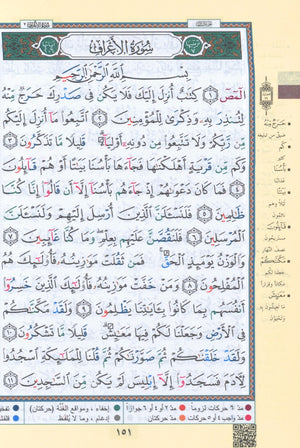 سُورَةُ الأَعْرَافِ
بِسْمِ اللَّهِ الرَّحْمَٰنِ الرَّحِيمِ
الٓمٓصٓ ١ كِتَٰبٌ أُنزِلَ إِلَيْكَ فَلَا يَكُن فِى صَدْرِكَ حَرَجٌ مِّنْهُ
لِتُنذِرَ بِهِۦ وَذِكْرَىٰ لِلْمُؤْمِنِينَ ٢ ٱتَّبِعُوا۟ مَآ أُنزِلَ إِلَيْكُم
مِّن رَّبِّكُمْ وَلَا تَتَّبِعُوا۟ مِن دُونِهِۦٓ أَوْلِيَآءَ ۗ قَلِيلًا مَّا تَذَكَّرُونَ ٣ وَكَم
مِّن قَرْيَةٍ أَهْلَكْنَٰهَا فَجَآءَهَا بَأْسُنَا بَيَٰتًا أَوْ هُمْ قَآئِلُونَ
٤ فَمَا كَانَ دَعْوَىٰهُمْ إِذْ جَآءَهُم بَأْسُنَآ إِلَّآ أَن قَالُوٓا۟ إِنَّا كُنَّا
ظَٰلِمِينَ ٥ فَلَنَسْـَٔلَنَّ ٱلَّذِينَ أُرْسِلَ إِلَيْهِمْ وَلَنَسْـَٔلَنَّ
ٱلْمُرْسَلِينَ ٦ فَلَنَقُصَّنَّ عَلَيْهِم بِعِلْمٍ ۖ وَمَا كُنَّا غَآئِبِينَ ٧
وَٱلْوَزْنُ يَوْمَئِذٍ ٱلْحَقُّ ۚ فَمَن ثَقُلَتْ مَوَٰزِينُهُۥ فَأُو۟لَٰٓئِكَ هُمُ
ٱلْمُفْلِحُونَ ٨ وَمَنْ خَفَّتْ مَوَٰزِينُهُۥ فَأُو۟لَٰٓئِكَ ٱلَّذِينَ خَسِرُوٓا۟
أَنفُسَهُم بِمَا كَانُوا۟ بِـَٔايَٰتِنَا يَظْلِمُونَ ٩ وَلَقَدْ مَكَّنَّٰكُمْ
فِى ٱلْأَرْضِ وَجَعَلْنَا لَكُمْ فِيهَا مَعَٰيِشَ ۗ قَلِيلًا مَّا تَشْكُرُونَ ١٠
وَلَقَدْ خَلَقْنَٰكُمْ ثُمَّ صَوَّرْنَٰكُمْ ثُمَّ قُلْنَا لِلْمَلَٰٓئِكَةِ ٱسْجُدُوا۟
لِءَادَمَ فَسَجَدُوٓا۟ إِلَّآ إِبْلِيسَ لَمْ يَكُن مِّنَ ٱلسَّٰجِدِينَ ١١
١٥١
حَرَجٌ مِنْهُ
كَم
بَأْسُنَا
قَائِلُونَ
مَكَّنَّاكُمْ